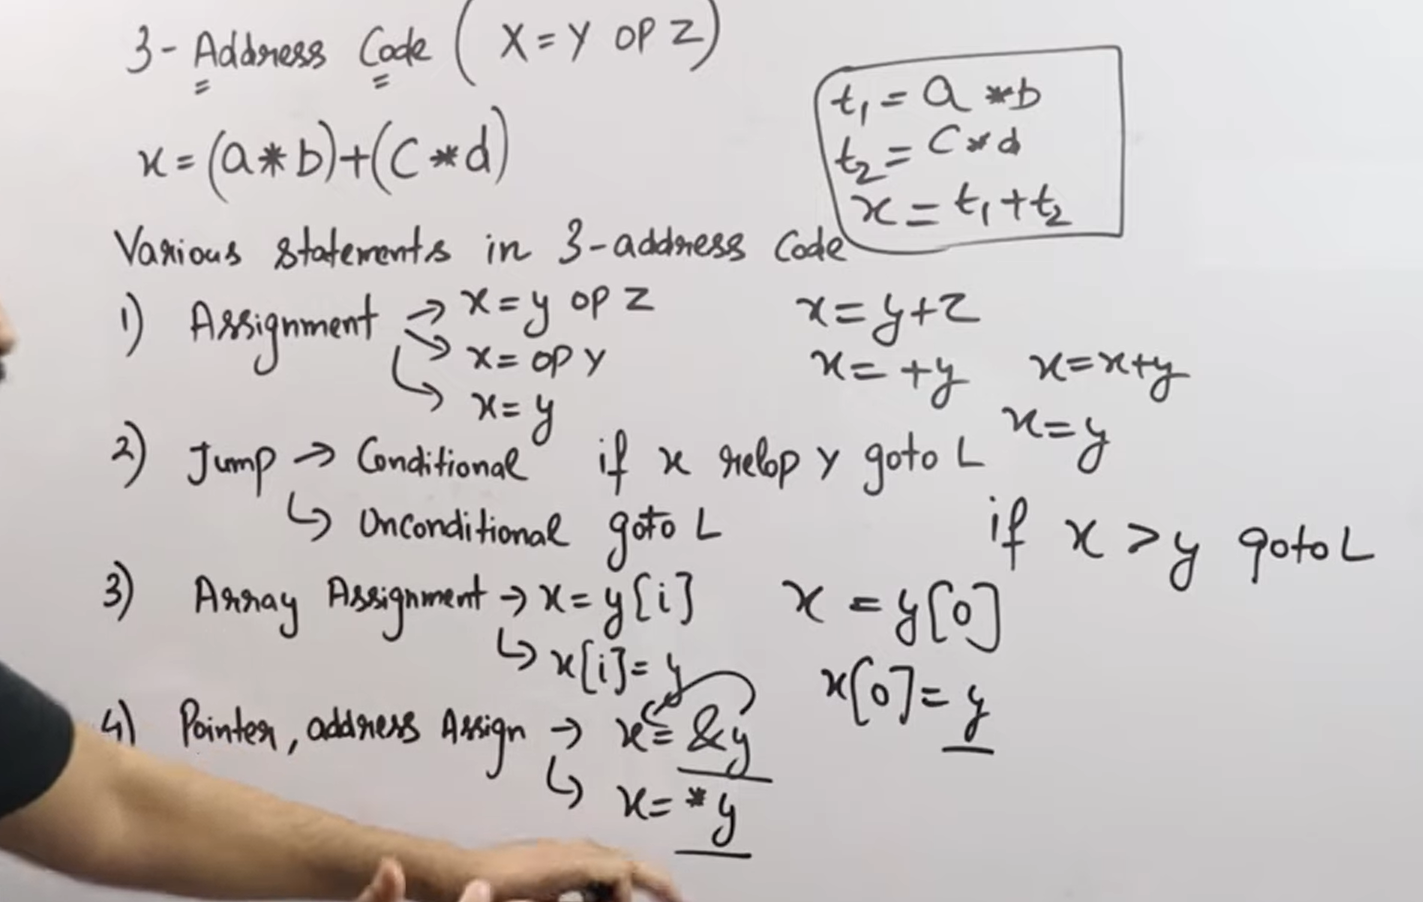 3-Address Code ( X = Y OP Z )
x = (a * b) + (c * d)
t₁ = a * b
t₂ = c * d
x = t₁ + t₂
Various statements in 3-address Code
1) Assignment → x = y op z
x = y + z
→ x = op y
x = + y
x = x + y
→ x = y
x = y
2) Jump → Conditional if x relop y goto L
↳ Unconditional goto L
if x > y goto L
3) Array Assignment → x = y[i]
x = y[0]
↳ x[i] = y
x[0] = y
4) Pointer, address Assign → x = &y
↳ x = *y